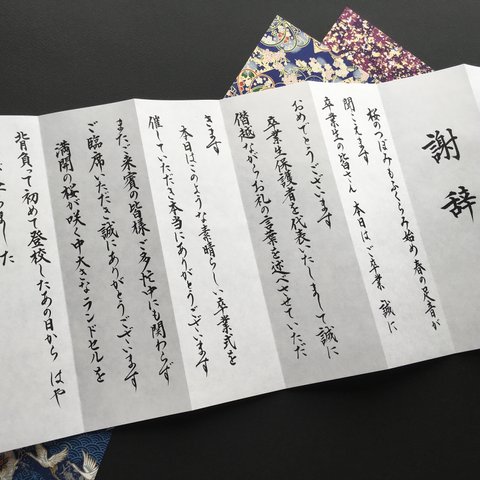 謝辞
桜のつぼみもふくらみ始め春の足音が
聞こえます
卒業生の皆さん 本日はご卒業 誠に
おめでとうございます
卒業生保護者を代表いたしまして誠に
僭越ながらお礼の言葉を述べさせていただ
きます
本日はこのような素晴らしい卒業式を
催していただき本当にありがとうございます
またご来賓の皆様ご多忙中にも関わらず
ご臨席いただき誠にありがとうございます
満開の桜が咲く中大きなランドセルを
背負って初めて登校したあの日から はや